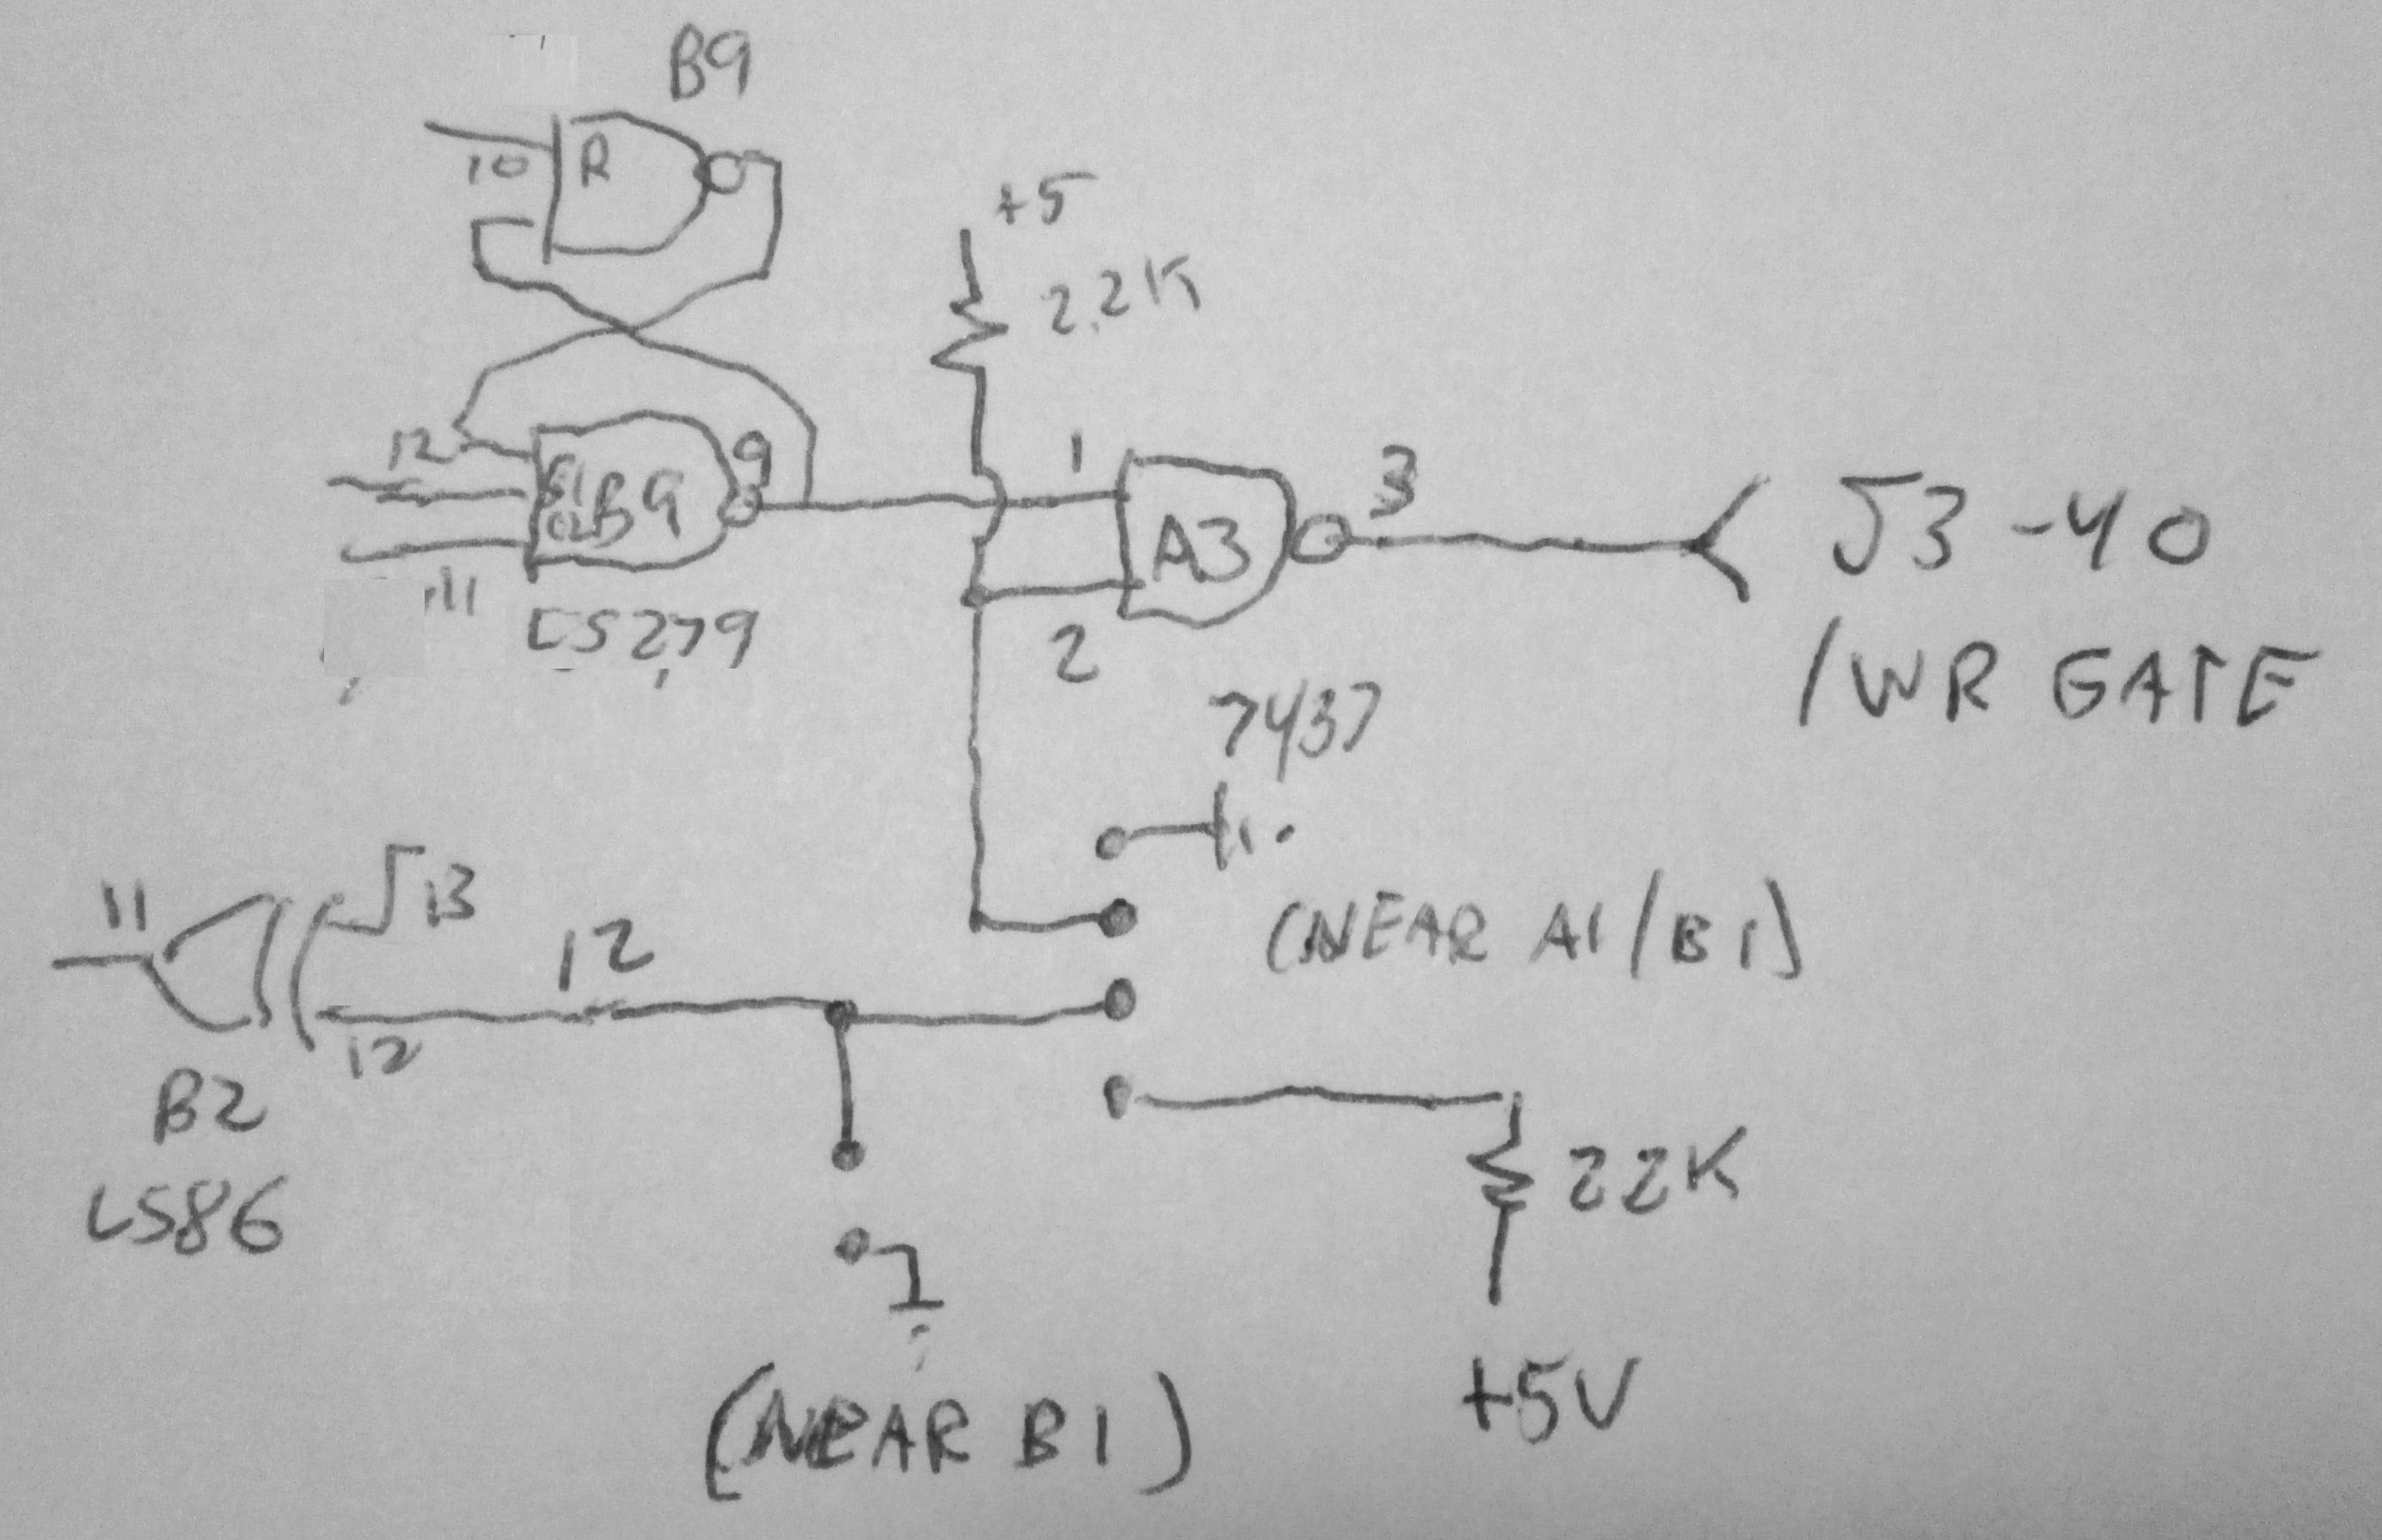 B9
10 R
+5
2.2K
12
9
1
3
S1 B9
S2
A3
J3-40
11
LS279
2
/WR GATE
7437
11
13
(NEAR A1/B1)
12
12
B2
LS86
22K
+5V
(NEAR B1)